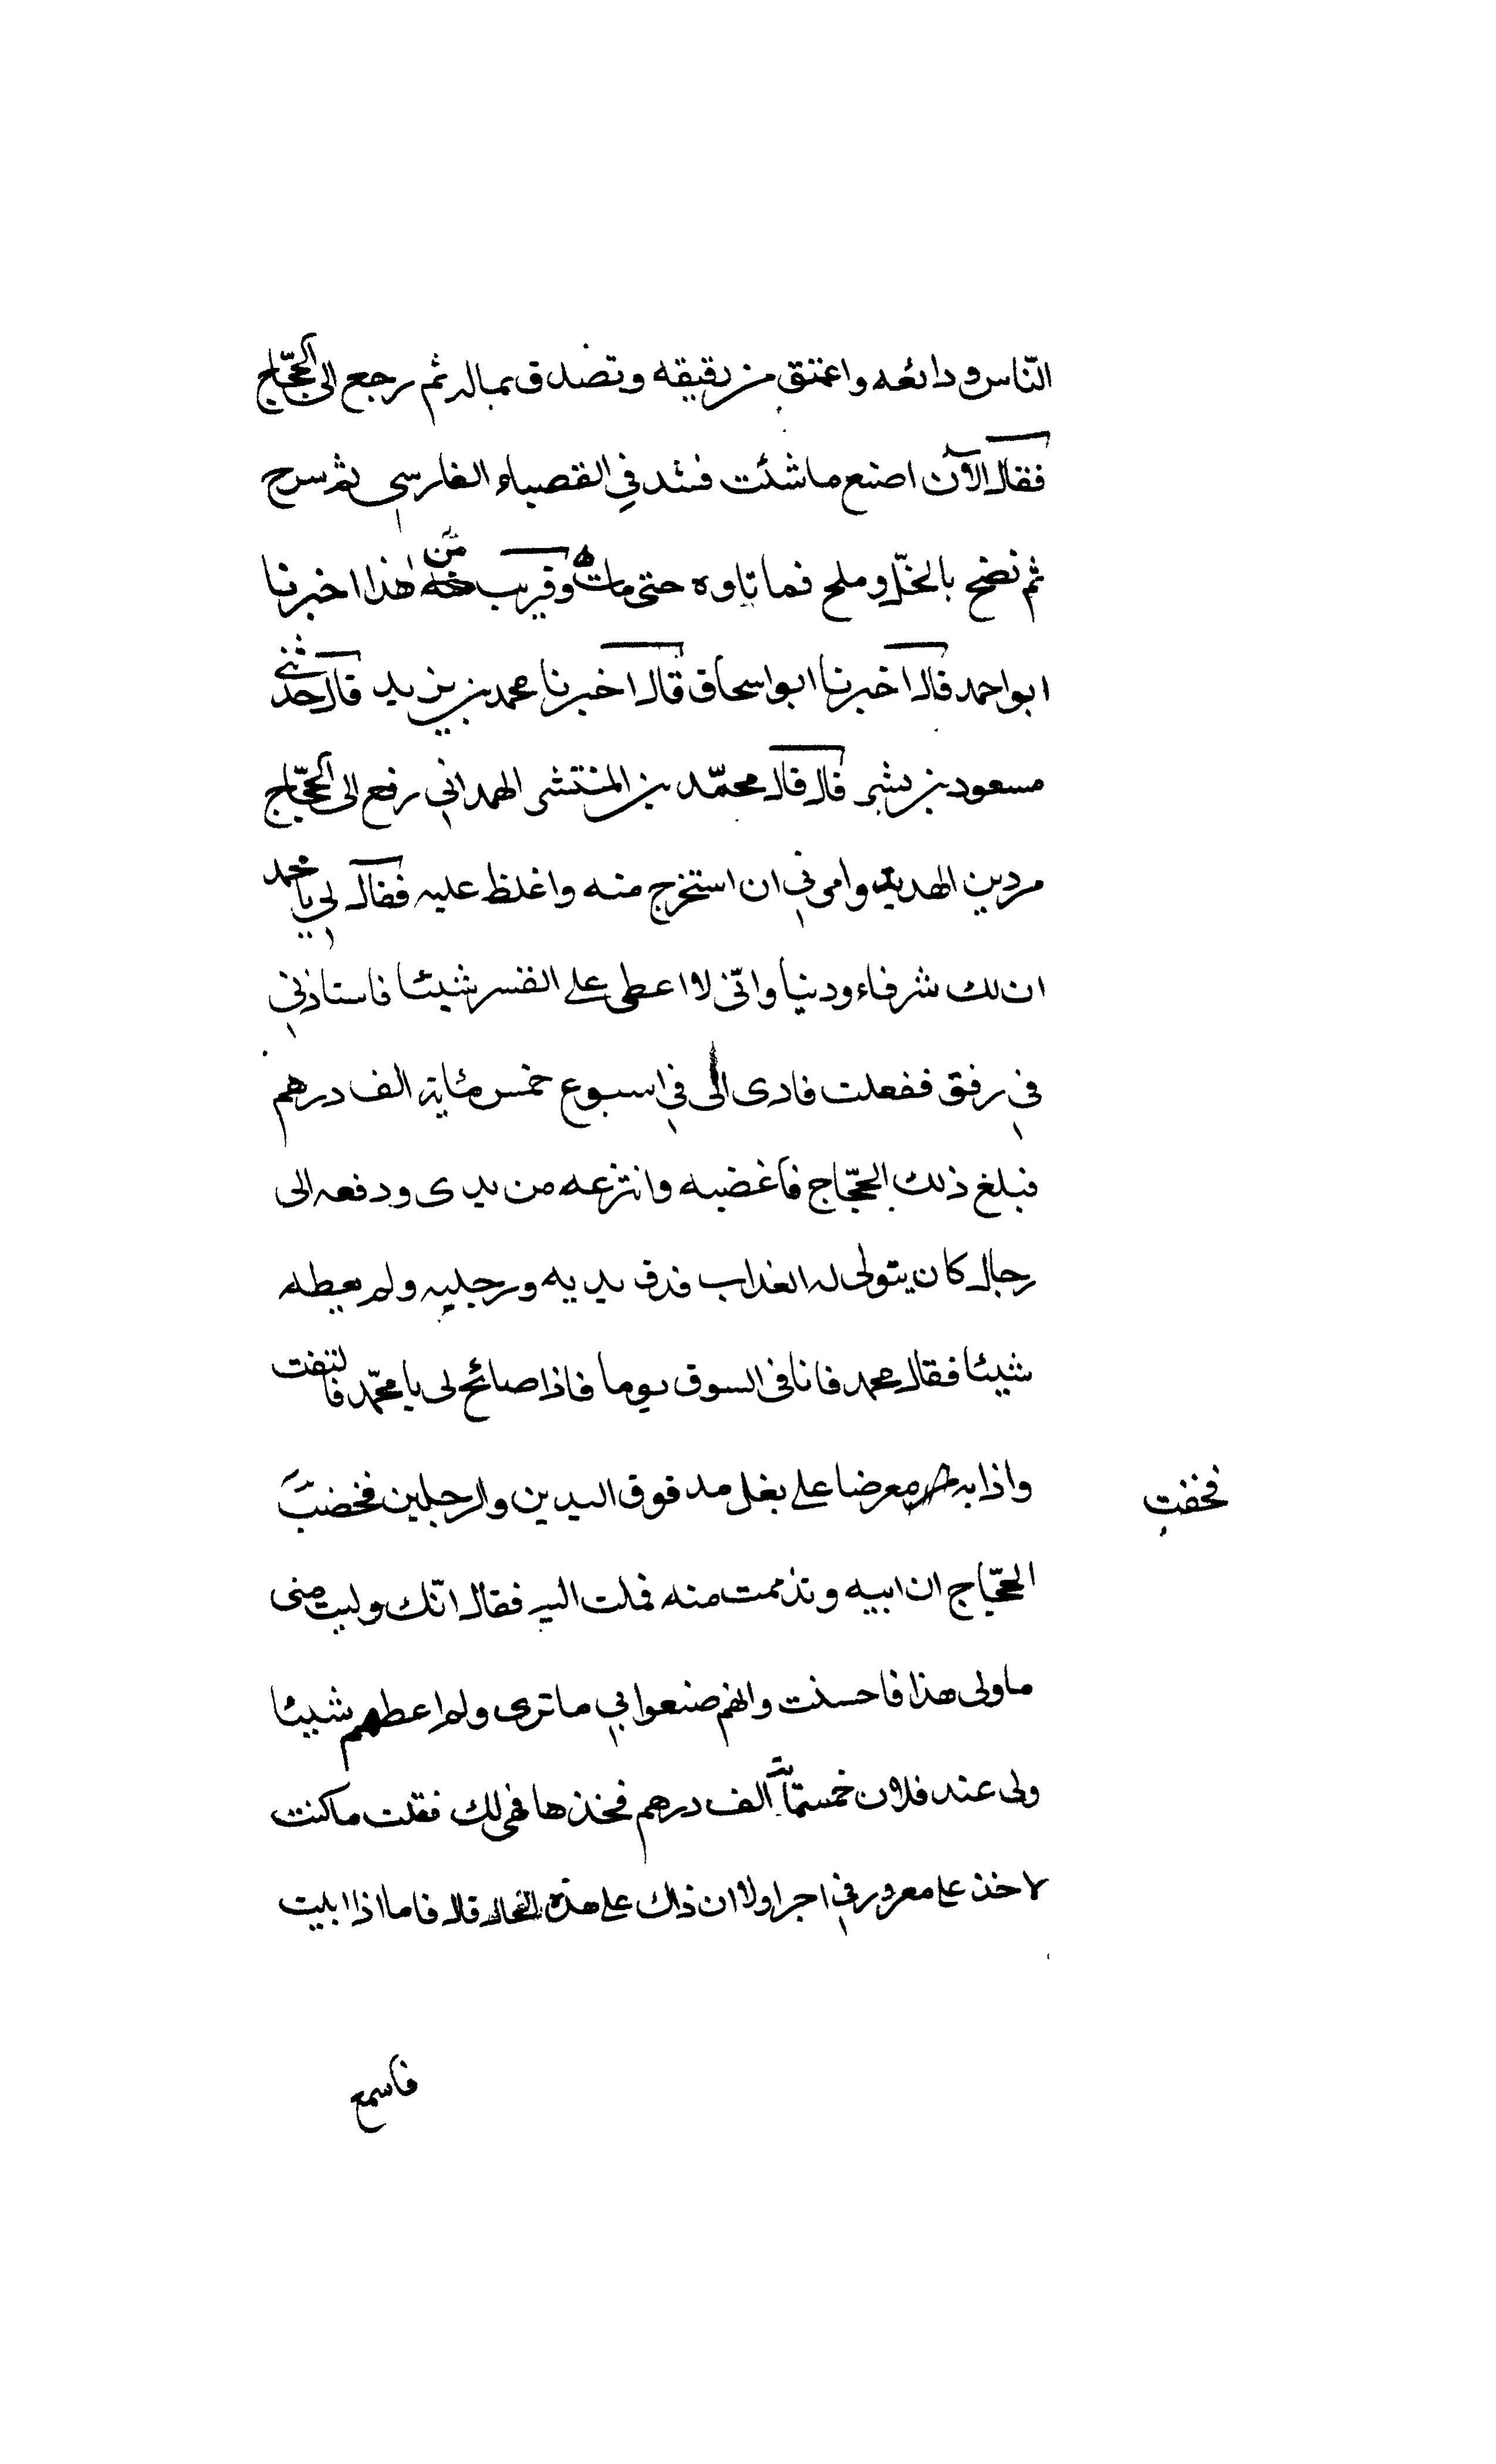 النّاس ودائعه واعتق من رقيقه وتصدق بماله ثم رجع الى الحجّاج
فقال الآن اصنع ما شئت فشد في القصباء الفارسي ثم سرح
ثم نضح بالخلّ وملح فما تاوه حتى مات وقريب من هذا اخبرنا
ابو احمد قال اخبرنا ابو اسحاق قال اخبرنا محمد بن يزيد قال حدثني
مسعود بن بشر قال قال محمّد بن المنتشر الهمداني رفع الى الحجّاج
مردين الهديد وامرني ان استخرج منه واغلظ عليه فقال لي يا محمد
ان لك شرفاء ودنيا وانّى لا اعطى على القسر شيئا فاستاذني
في رفق ففعلت فادى الى في اسبوع خمس مئاية الف درهم
فبلغ ذلك الحجّاج فأغضبه وانتزعه من يدى ودفعه الى
رجال كان يتولى له العذاب فدق يديه ورجليه ولم يعطه
شيئا فقال محمد فانا فى السوق يوما فاذا صائح لى يا محمّد فالتفت
واذا به معرضا على بغل مدقوق اليدين والرجلين فخضبت
فخفت
الحجّاج ان ابيه وتذممت منه فملت اليه فقال انّك وليت منى
ما ولى هذا فاحسنت وانهم صنعوا بي ما ترى ولم اعطهم شيئا
ولى عند فلان خمسمائة الف درهم فخذها فهى لك فقلت ما كنت
لاخذ على معروفي اجرا ولا ان ذلك على هذه الحال قال فاما اذا ابليت
فاسمع